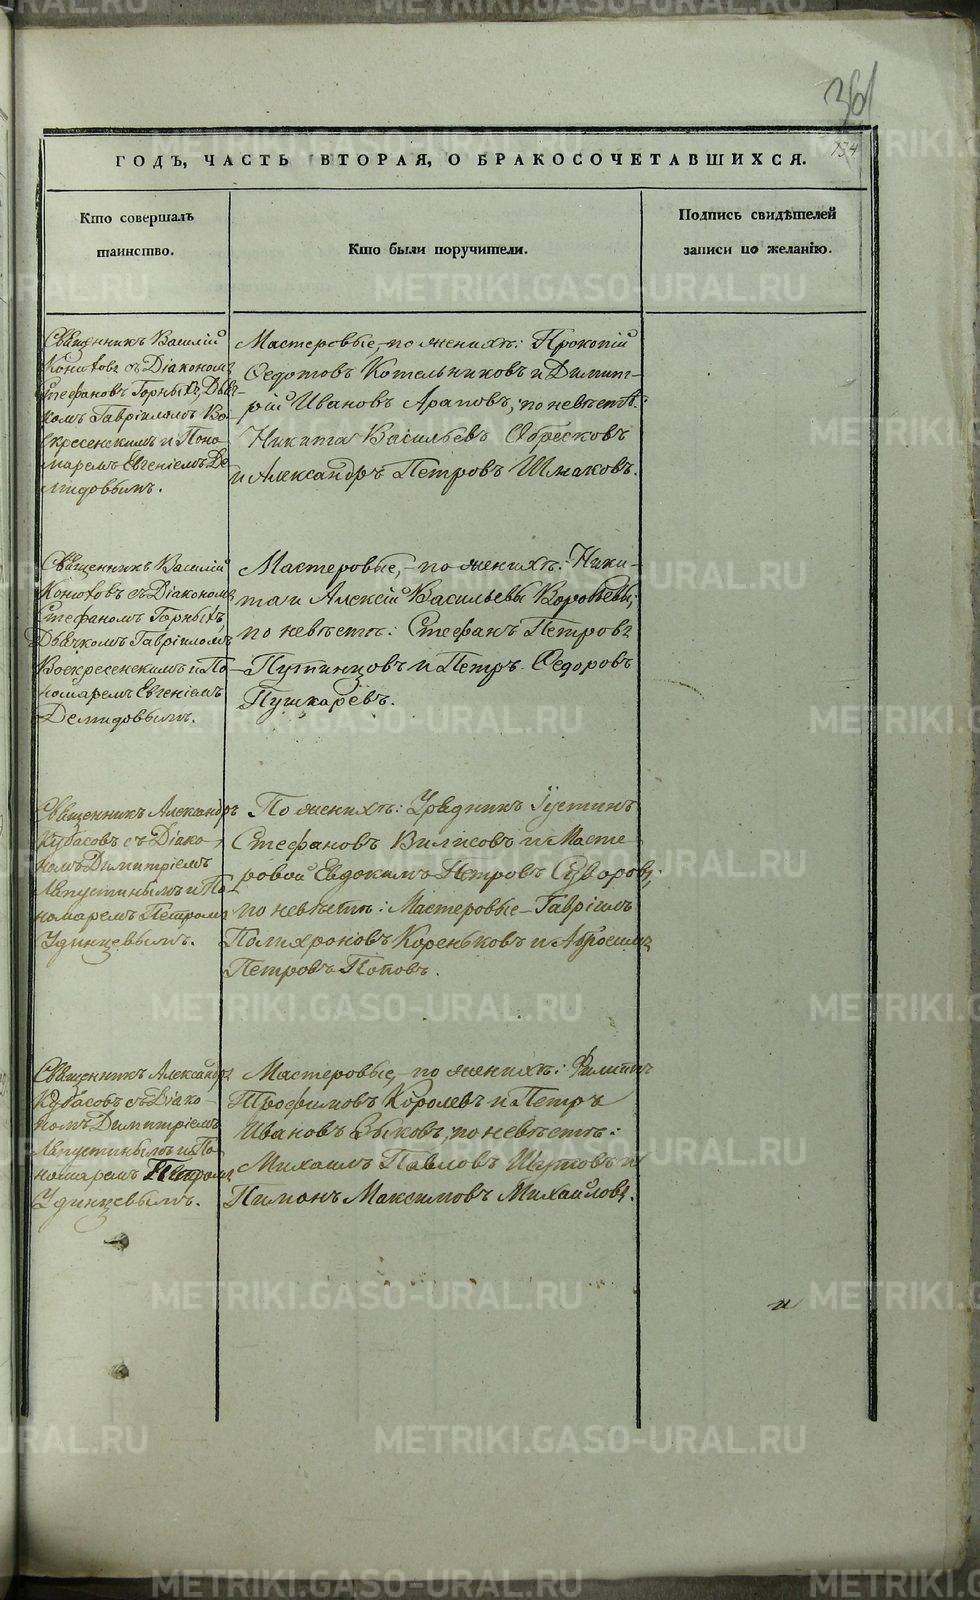 361
134
ГОДЪ, ЧАСТЬ ВТОРАЯ, О БРАКОСОЧЕТАВШИХСЯ.
Кто совершалъ
таинство.
Кто были поручители.
Подпись свидѣтелей
записи по желанію.
Священникъ Василій
Конюховъ съ Діакономъ
Стефаномъ Горныхъ, Дьяч-
комъ Гавріиломъ Во-
скресенскимъ и Поно-
маремъ Евгеніемъ Де-
мидовымъ.
Мастеровые, по женихѣ: Прокопій
Федотовъ Котельниковъ и Димит-
рій Ивановъ Араповъ, по невѣстѣ:
Никита Васильевъ Обресковъ
и Александръ Петровъ Шмаковъ.
Священникъ Василій
Конюховъ съ Діакономъ
Стефаномъ Горныхъ,
Дьячкомъ Гавріиломъ
Воскресенскимъ и По-
номаремъ Евгеніемъ
Демидовымъ.
Мастеровые, по женихѣ: Ники-
та и Алексій Васильевы Воробьевы,
по невѣстѣ: Стефанъ Петровъ
Путинцовъ и Петръ Федоровъ
Пушкаревъ.
Священникъ Александръ
Кубасовъ съ Діако-
номъ Димитріемъ
Августинымъ и По-
номаремъ Петромъ
Удинцевымъ.
По женихѣ: Урядникъ Іустинъ
Стефановъ Вилисовъ и Масте-
ровой Евдокимъ Петровъ Суворовъ,
по невѣстѣ: Мастеровые Гавріилъ
Полихроновъ Кореньковъ и Абросимъ
Петровъ Поповъ.
Священникъ Александръ
Кубасовъ съ Діако-
номъ Димитріемъ
Августинымъ и По-
номаремъ Петромъ
Удинцевымъ.
Мастеровые, по женихѣ: Филиппъ
Трофимовъ Королевъ и Петръ
Ивановъ Зыковъ, по невѣстѣ:
Михаилъ Павловъ Шутовъ и
Пименъ Максимовъ Михайловъ.
и
METRIKI.GASO-URAL.RU